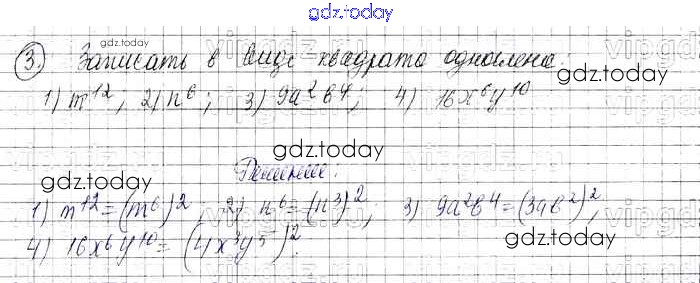 gdz.today
3. Записать в виде квадрата одночлена:
1) m¹², 2) n⁶; 3) 9a²b⁴; 4) 16x⁶y¹⁰
gdz.today
gdz.today
Решение:
gdz.today
gdz.today
1) m¹² = (m⁶)², 2) n⁶ = (n³)², 3) 9a²b⁴ = (3ab²)²,
4) 16x⁶y¹⁰ = (4x³y⁵)².
gdz.today